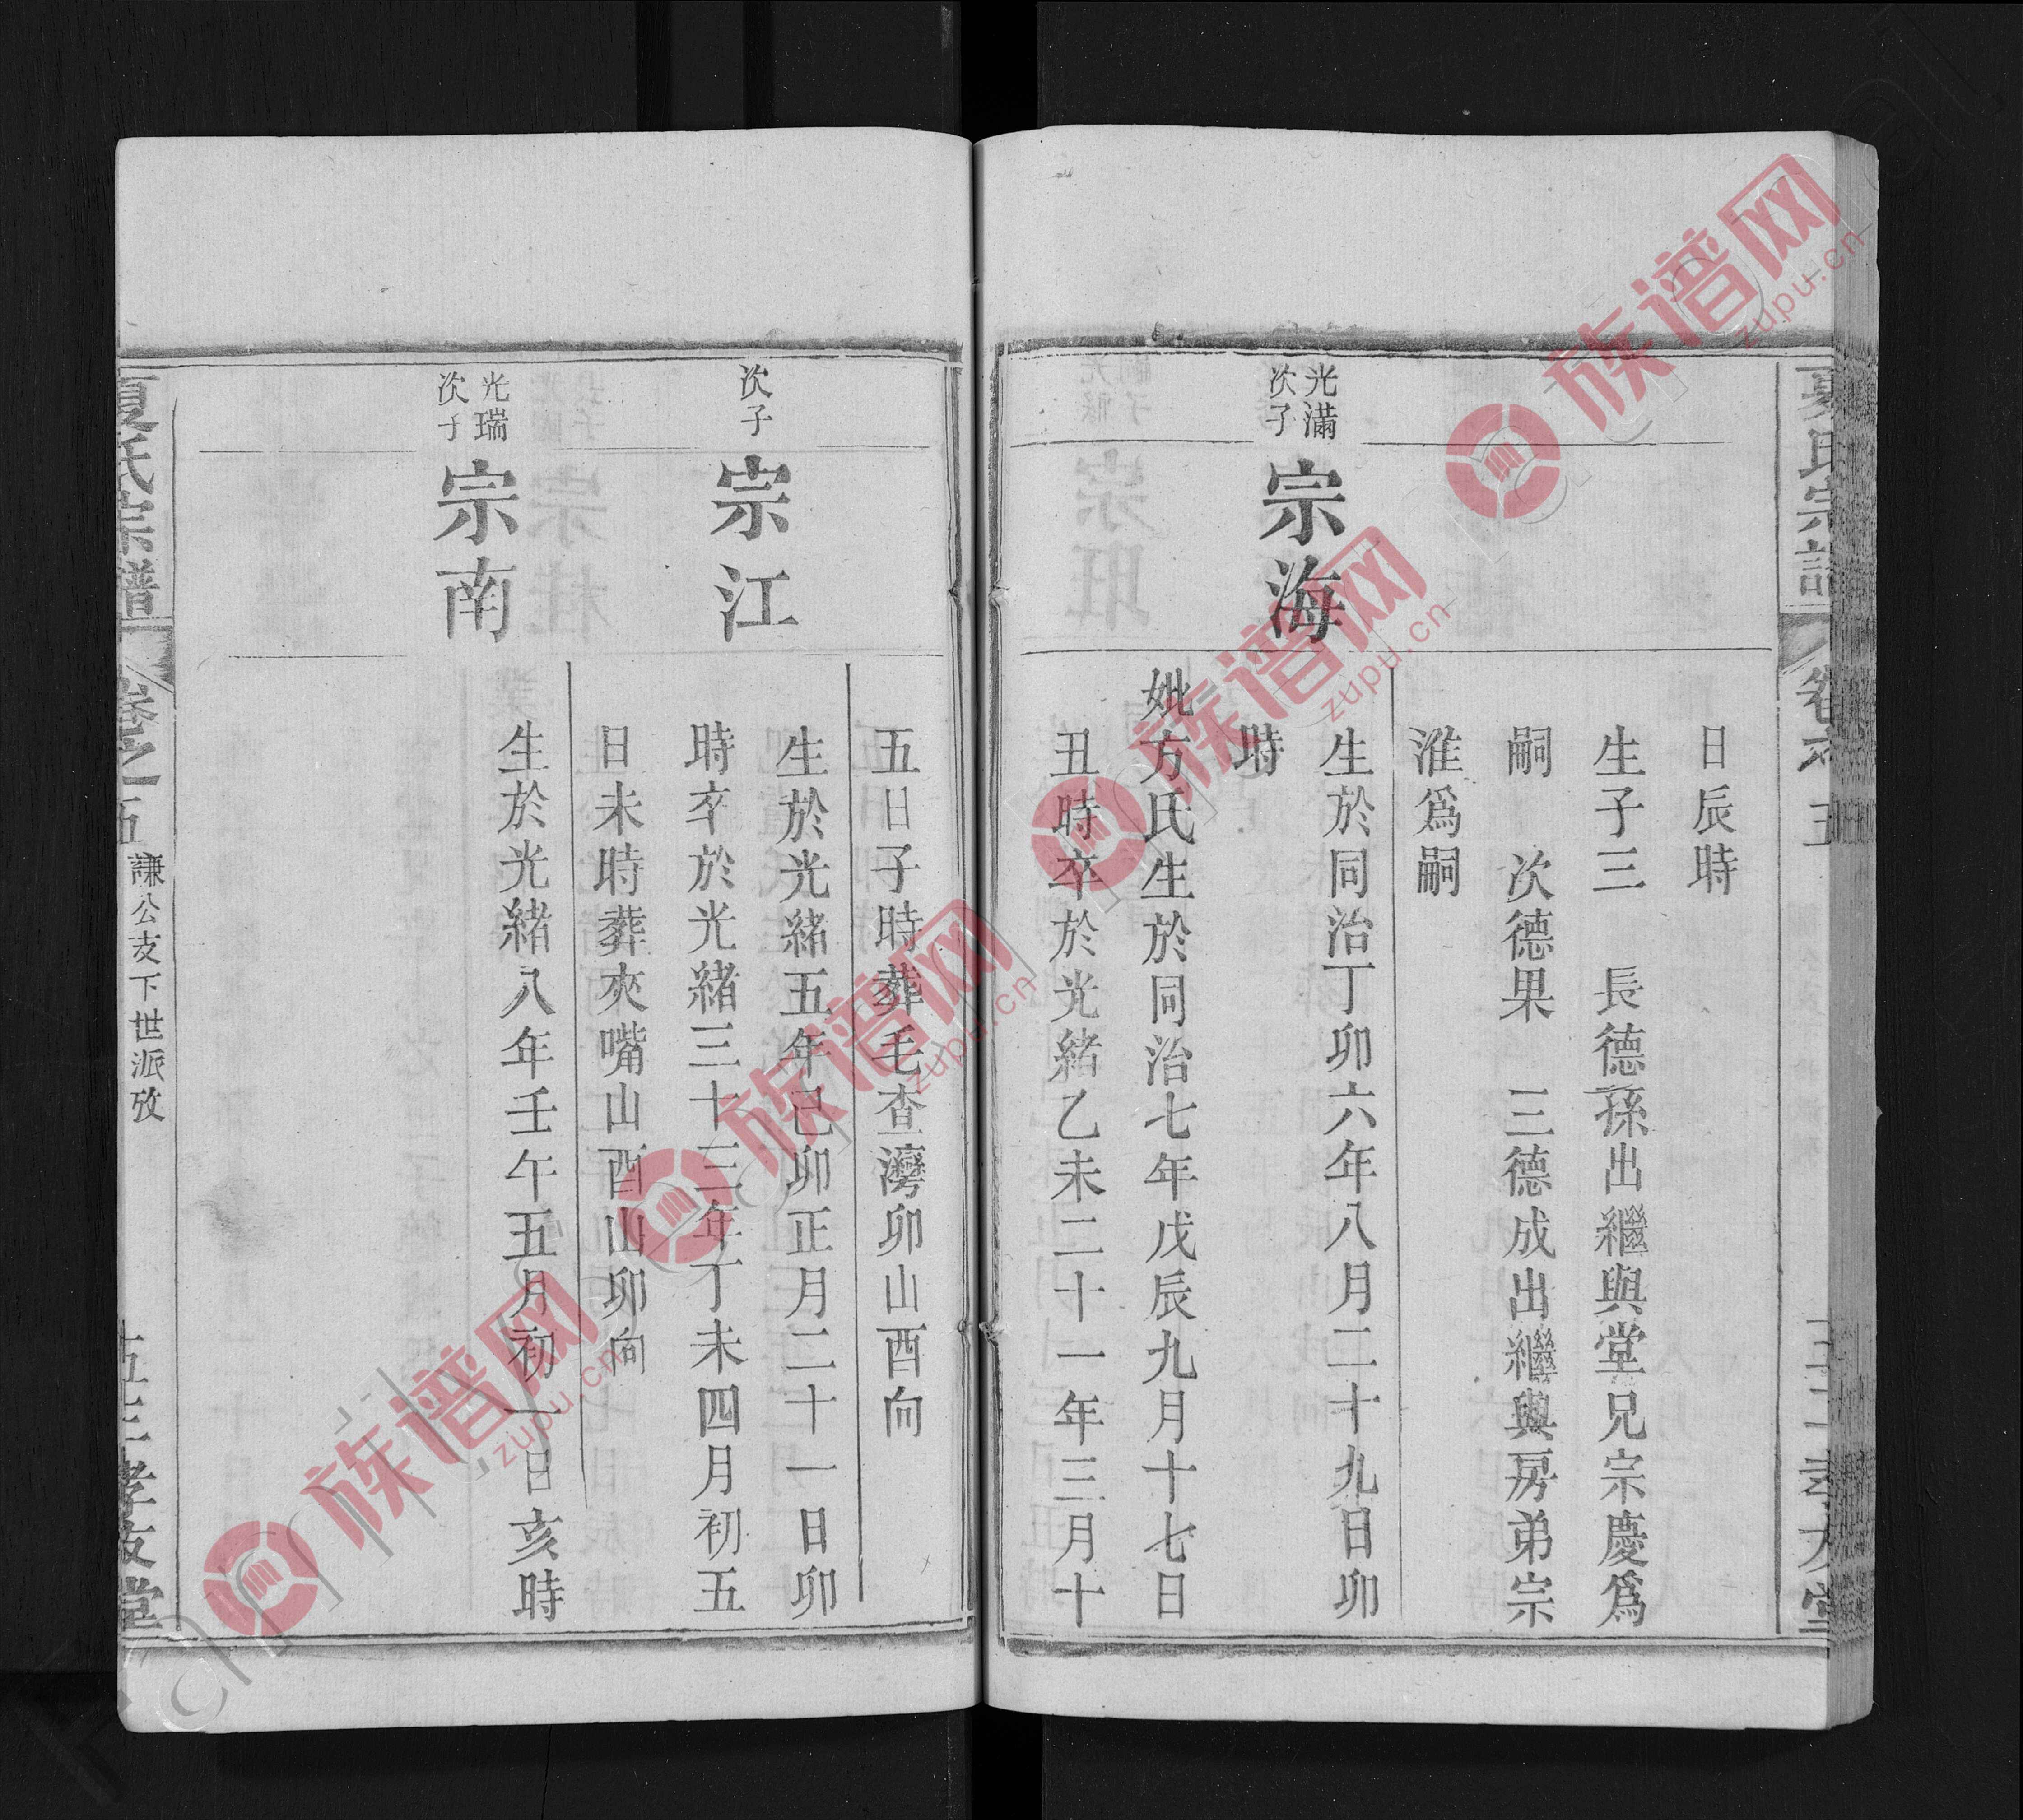 日辰時
生子三　長德孫出繼與堂兄宗慶爲
嗣　次德果　三德成出繼與房弟宗
淮爲嗣
光滿
次子
宗海
生於同治丁卯六年八月二十九日卯
時
妣方氏生於同治七年戊辰九月十七日
丑時卒於光緒乙未二十一年三月十
五日子時葬毛查灣卯山酉向
次子
宗江
生於光緒五年己卯正月二十一日卯
時卒於光緒三十三年丁未四月初五
日未時葬夾嘴山酉山卯向
光瑞
次子
宗南
生於光緒八年壬午五月初一日亥時
夏氏宗譜
卷之五
謙公支下世派攷
孝友堂
族谱网
zupu.cn
族谱网
zupu.cn
族谱网
zupu.cn
族谱网
zupu.cn